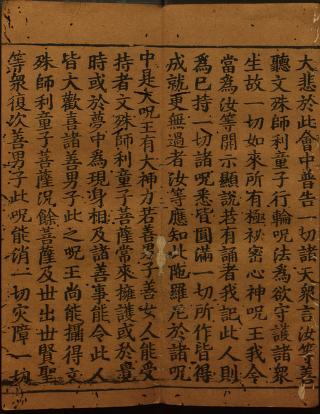 大悲於此會中普告一切諸天衆言汝等善
聽文殊師利童子行輪呪法爲欲守護諸衆
生故一切如來所有極祕密心神呪王我令
當爲汝等開示顯說若有誦者我記此人則
爲巳持一切諸呪悉皆圓滿一切所作皆得
成就更無過者汝等應知此陁羅尼於諸呪
中是大呪王有大神力若善男子善女人能受
持者文殊師利童子菩薩常來擁護或於覺
時或於夢中爲現身相及諸善事能令此人
皆大歡喜諸善男子此之呪王尚能攝得文
殊師利童子菩薩况餘菩薩及世出世賢聖
等衆復次善男子此呪能消一切灾障一切